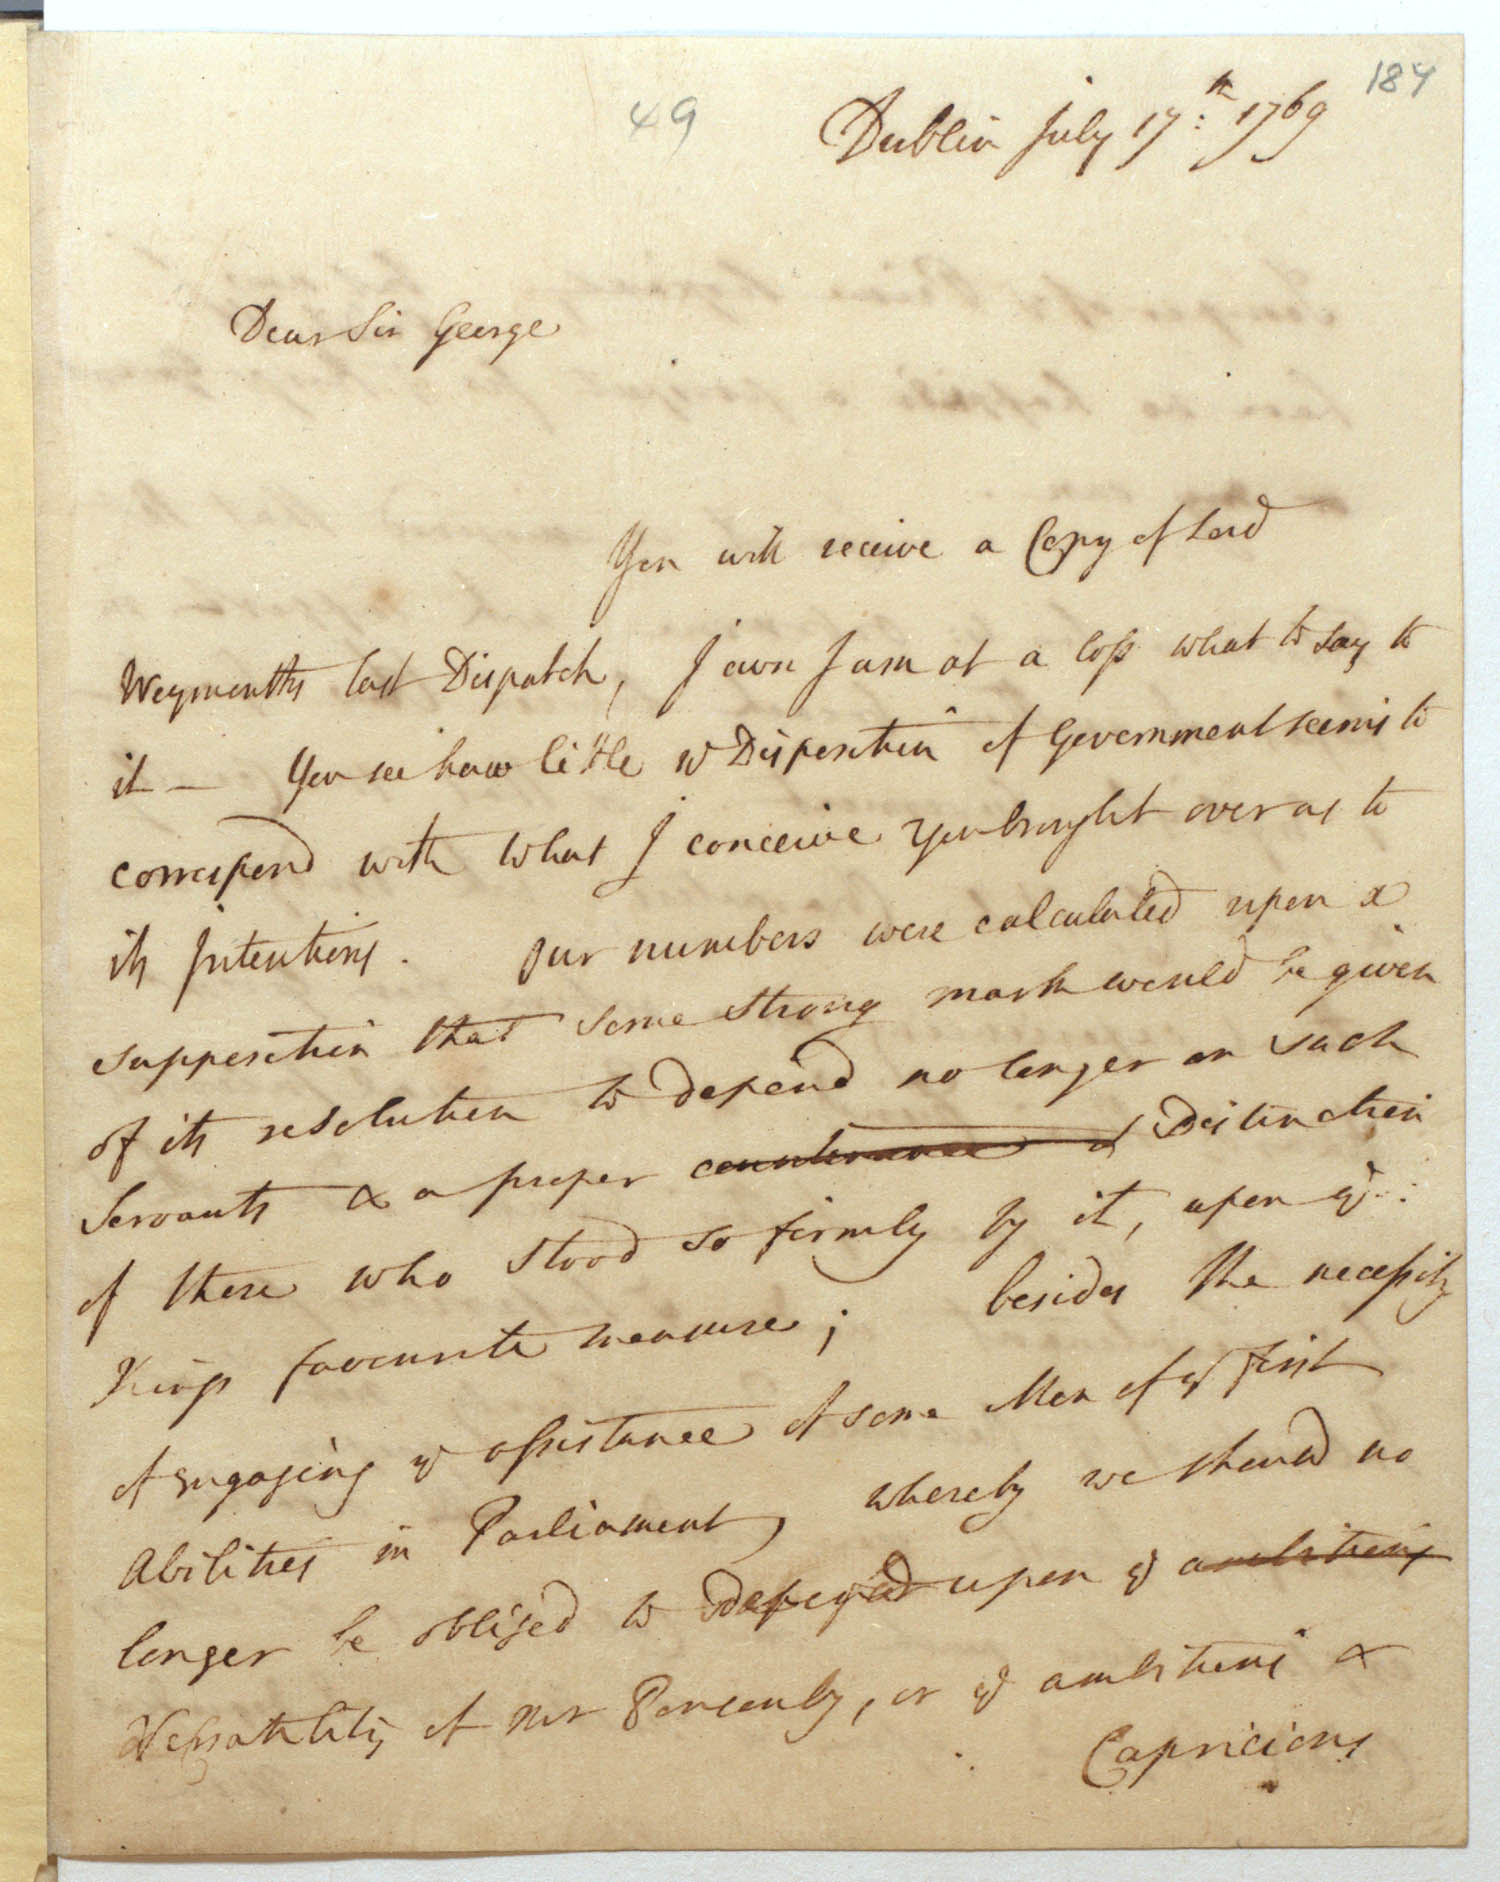 49
184
Dublin July 17:th 1769
Dear Sir George
You will receive a Copy of Lord
Weymouths last Dispatch, I own I am at a loss what to say to
it — You see how little ye Disposition of Government seems to
correspond with what I conceive You brought over as to
its Intentions. Our numbers were calculated upon a
supposition that some strong mark would be given
of its resolution to depend no longer on such
Servants & a proper countenance & Distinction
of those who stood so firmly by it, upon ye
Kings favourite measure; besides the necessity
of engaging ye assistance of some Men of ye first
Abilities in Parliament, whereby we should no
longer be obliged to depend upon ye ambitious
Versatility of Mr Ponsonby, or ye ambitious &
Capricious